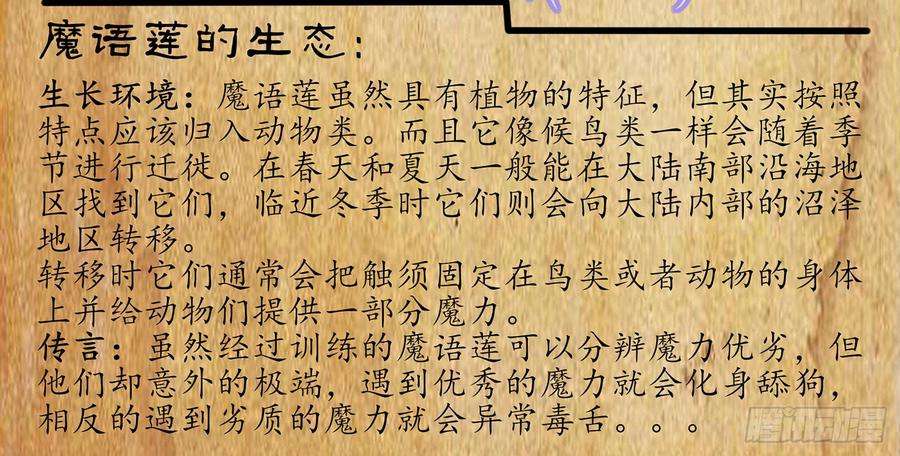 魔语莲的生态：
生长环境：魔语莲虽然具有植物的特征，但其实按照
特点应该归入动物类。而且它像候鸟类一样会随着季
节进行迁徙。在春天和夏天一般能在大陆南部沿海地
区找到它们，临近冬季时它们则会向大陆内部的沼泽
地区转移。
转移时它们通常会把触须固定在鸟类或者动物的身体
上并给动物们提供一部分魔力。
传言：虽然经过训练的魔语莲可以分辨魔力优劣，但
他们却意外的极端，遇到优秀的魔力就会化身舔狗，
相反的遇到劣质的魔力就会异常毒舌。。。
腾讯动漫